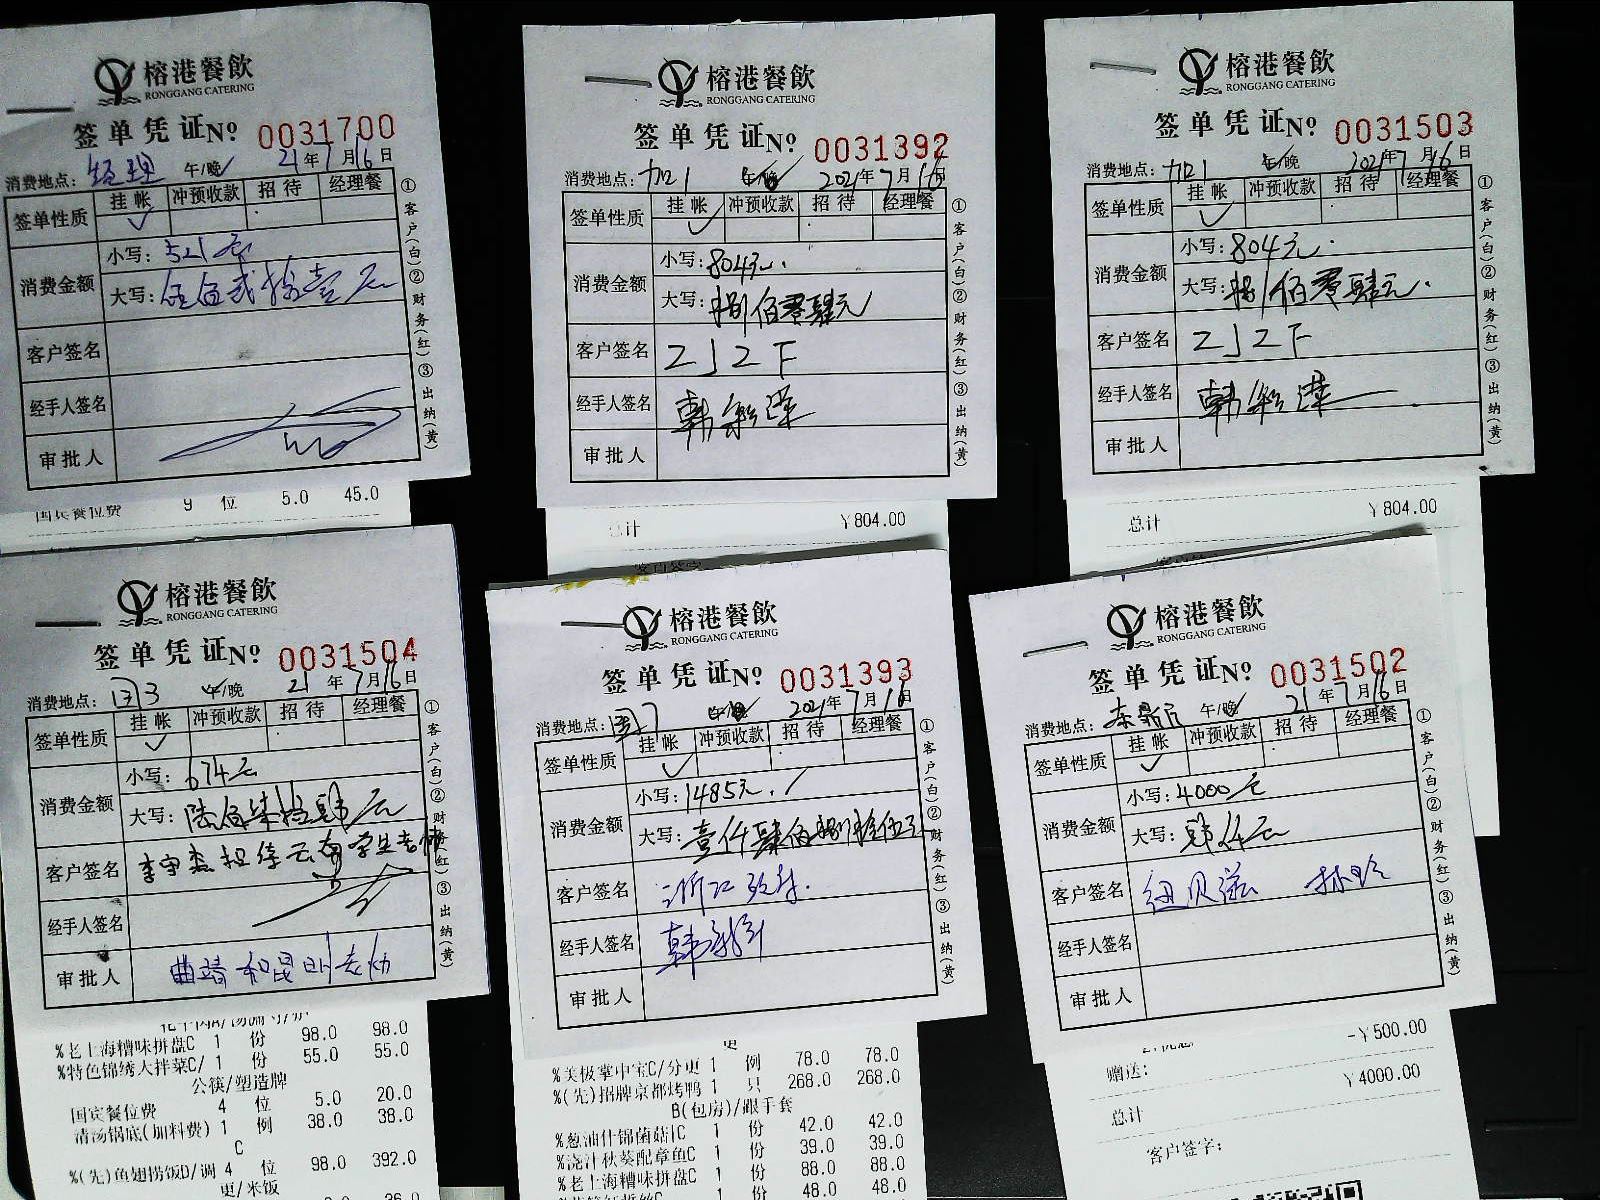 榕港餐飲
RONGGANG CATERING
签单凭证 No 0031700
消费地点: 经理 午/晚 21年7月16日
签单性质 挂帐 冲预收款 招待 经理餐
✓
消费金额 小写: 521元
大写: 伍佰贰拾壹元
客户签名
经手人签名
审批人
①客户(白)②财务(红)③出纳(黄)
国宾餐位费 9 位 5.0 45.0
榕港餐飲
RONGGANG CATERING
签单凭证 No 0031392
消费地点: 加1 午/晚 2021年7月16日
签单性质 挂帐 冲预收款 招待 经理餐
✓
消费金额 小写: 804元.
大写: 捌佰零肆元
客户签名
经手人签名 韩
审批人
①客户(白)②财务(红)③出纳(黄)
总计 ¥804.00
客户签字
榕港餐飲
RONGGANG CATERING
签单凭证 No 0031503
消费地点: 加1 午/晚 2021年7月16日
签单性质 挂帐 冲预收款 招待 经理餐
✓
消费金额 小写: 804元.
大写: 捌佰零肆元.
客户签名
经手人签名 韩
审批人
①客户(白)②财务(红)③出纳(黄)
总计 ¥804.00
榕港餐飲
RONGGANG CATERING
签单凭证 No 0031504
消费地点: 国3 午/晚 21年7月16日
签单性质 挂帐 冲预收款 招待 经理餐
✓
消费金额 小写: 674元
大写: 陆佰柒拾肆元
客户签名 李 云南学生老师
经手人签名
审批人 曲靖和昆明老师
①客户(白)②财务(红)③出纳(黄)
%老上海糟味拼盘C 1 份 98.0 98.0
%特色锦绣大拌菜C/ 1 份 55.0 55.0
公筷/塑造牌
国宾餐位费 4 位 5.0 20.0
清汤锅底(加料费) 1 例 38.0 38.0
C
%(先)鱼翅捞饭D/调 4 位 98.0 392.0
更/米饭
榕港餐飲
RONGGANG CATERING
签单凭证 No 0031393
消费地点: 国7 午/晚 2021年7月16日
签单性质 挂帐 冲预收款 招待 经理餐
✓
消费金额 小写: 1485元.
大写: 壹仟肆佰捌拾伍元
客户签名 浙江
经手人签名 韩
审批人
①客户(白)②财务(红)③出纳(黄)
更
%美极掌中宝C/分更 1 例 78.0 78.0
%(先)招牌京都烤鸭 1 只 268.0 268.0
B(包房)/跟手套
%葱油什锦菌菇IC 1 份 42.0 42.0
%浇汁秋葵配章鱼C 1 份 39.0 39.0
%老上海糟味拼盘C 1 份 88.0 88.0
1 份 48.0 48.0
榕港餐飲
RONGGANG CATERING
签单凭证 No 0031502
消费地点: 午/晚 21年7月16日
签单性质 挂帐 冲预收款 招待 经理餐
✓
消费金额 小写: 4000元
大写: 肆仟元
客户签名 纽贝滋 林玲
经手人签名
审批人
①客户(白)②财务(红)③出纳(黄)
-¥500.00
赠送:
¥4000.00
总计
客户签字: